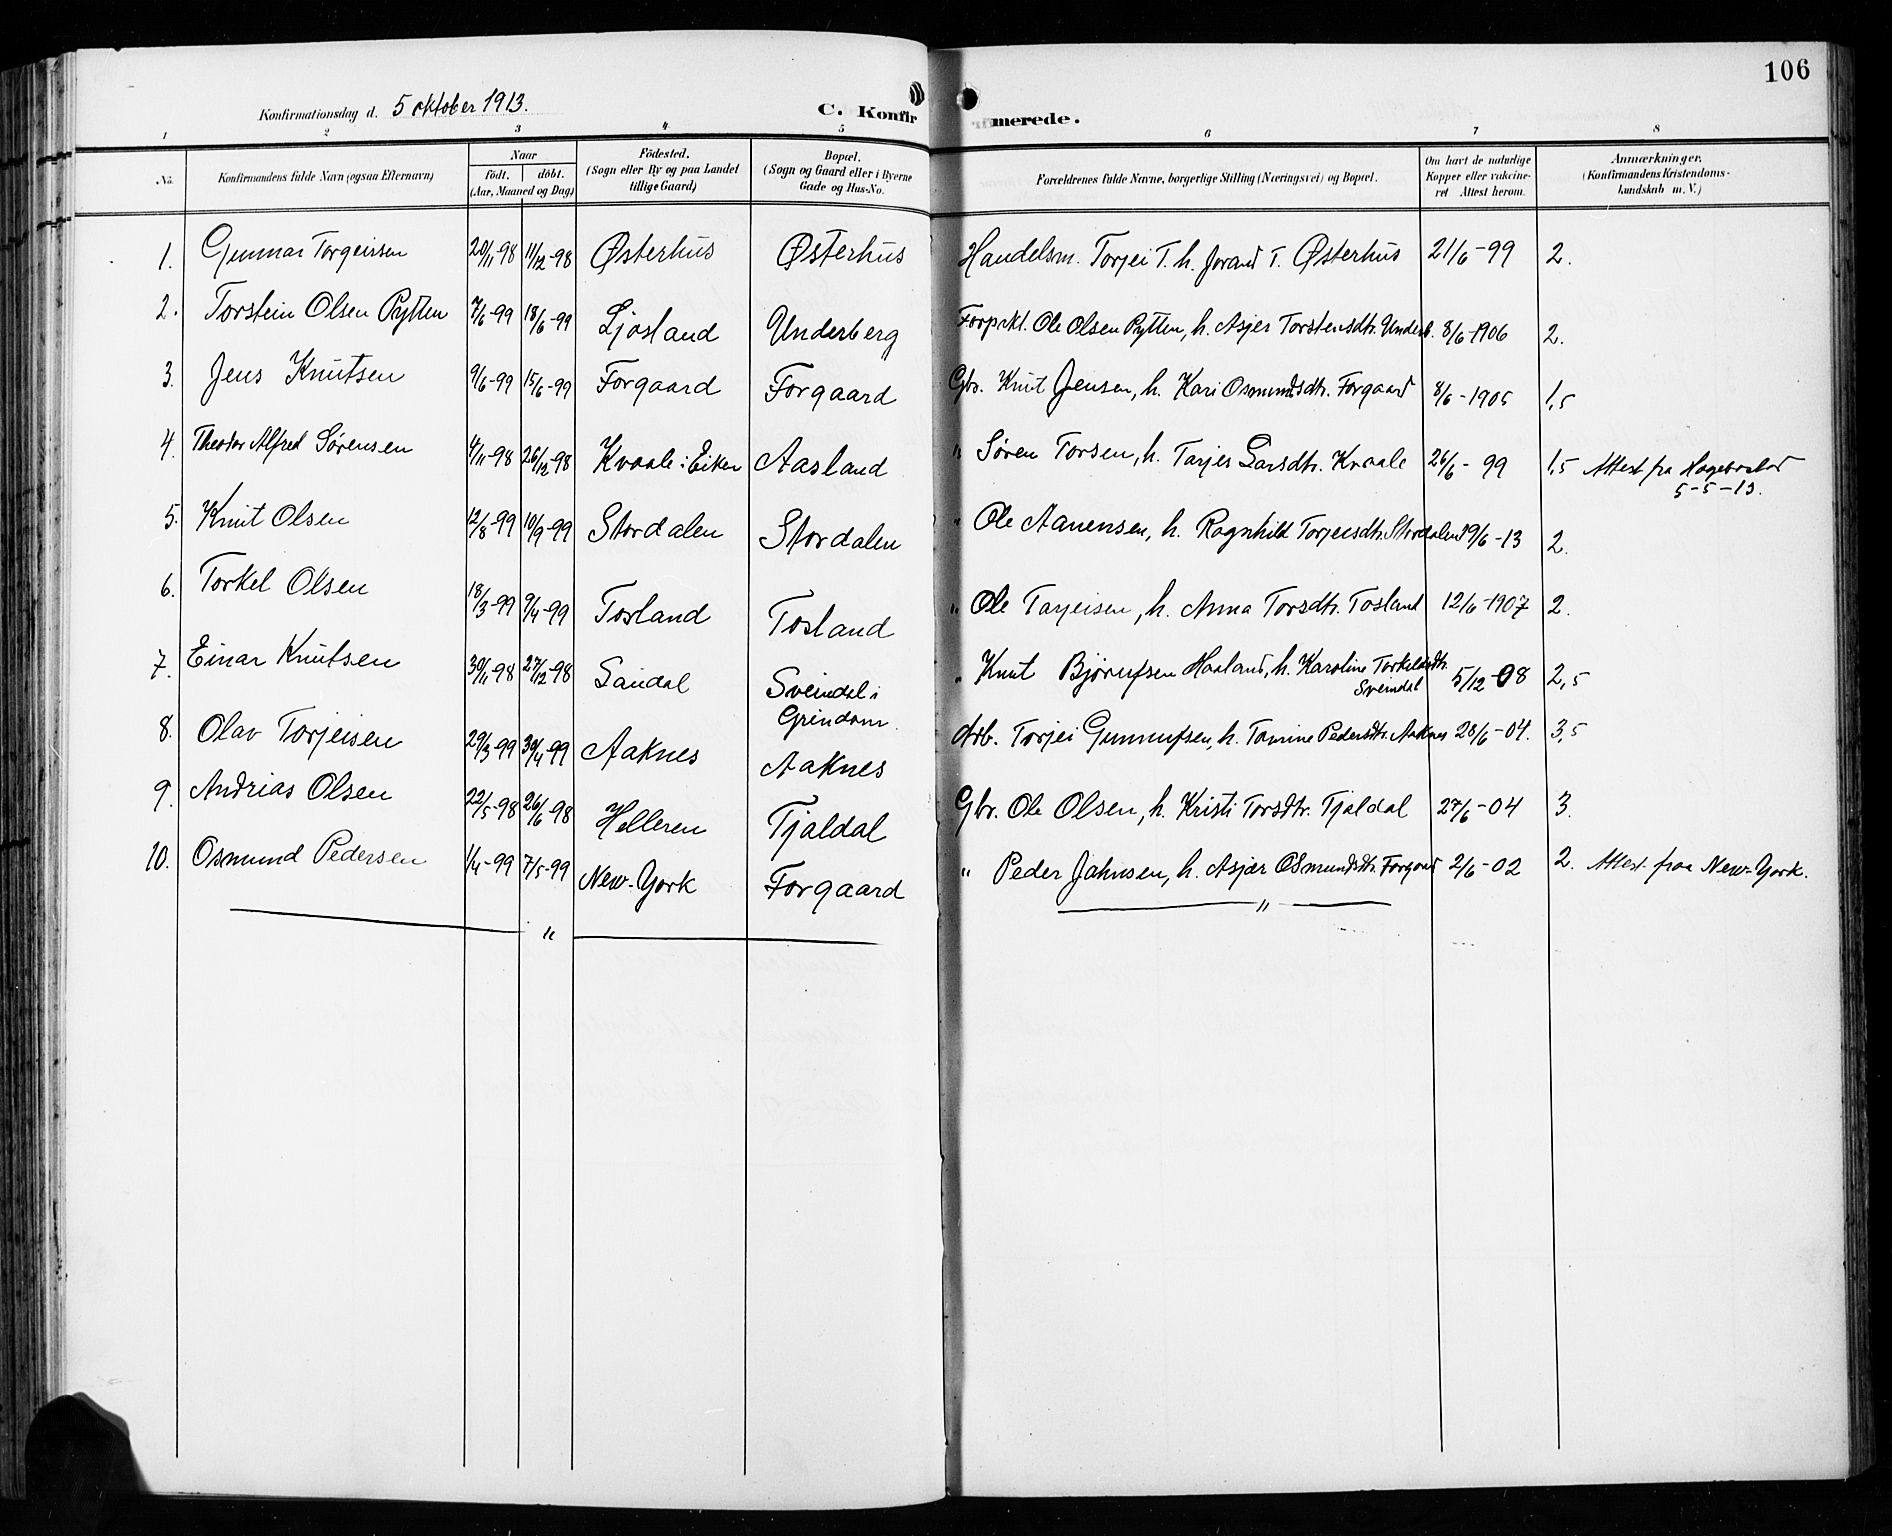 106
Konfirmationsdag d. 5 oktober 1913. C. Konfirmerede.
1 2 3 4 5 6 7 8
No. Konfirmandens fulde Navn (ogsaa Efternavn) Naar födt. döbt. (Aar, Maaned og Dag) Födested. (Sogn eller By og paa Landet tillige Gaard) Bopæl. (Sogn og Gaard eller i Byerne Gade og Hus-No. Forældrenes fulde Navne, borgerlige Stilling (Næringsvei) og Bopæl. Om havt de naturlige Kopper eller vakcineret Attest herom. Anmærkninger. (Konfirmandens Kristendomskundskab m. V.)
1. Gunnar Torgeirsen 20/11-98 11/12-98 Østerhus Østerhus Handelsm. Torjei T. h. Jorand T. Østerhus 21/6-99 2.
2. Torstein Olsen Rytten 7/6-99 18/6-99 Ljosland Underberg Forpakt. Ole Olsen Rytten, h. Asjer Torstensdtr. Underb. 8/6-1906 2.
3. Jens Knutsen 9/6-99 15/6-99 Forgaard Forgaard Gbr. Knut Jensen, h. Kari Osmundsdtr. Forgaard 8/6-1905 1,5
4. Theodor Alfred Sørensen 4/11-98 26/12-98 Kvaale i Eiken Aasland " Søren Torsen, h. Tarjer Larsdtr. Kvaale 26/6-99 1,5 Attest fra Hægebostad
5-5-13.
5. Knut Olsen 12/8-99 10/9-99 Stordalen Stordalen " Ole Aanensen, h. Ragnhild Torjeisdtr. Stordalen 19/6-13 2.
6. Torkel Olsen 18/3-99 9/4-99 Tosland Tosland " Ole Tarjeisen, h. Anna Torsdtr. Tosland 12/6-1907 2.
7. Einar Knutsen 30/11-98 27/12-98 Sandal Sveindal i " Knut Bjørnufsen Haaland, h. Karoline Torkelsdtr. 5/12-08 2,5
Grindom. Sveindal
8. Olav Torjeisen 29/3-99 30/4-99 Aaknes Aaknes Arb. Torjei Gunnufsen, h. Tomine Pedersdtr. Aaknes 28/6-04. 3,5
9. Andrias Olsen 22/5-98 26/6-98 Helleren Tjaldal Gbr. Ole Olsen, h. Kristi Torsdtr. Tjaldal 27/6-04 3.
10. Osmund Pedersen 1/4-99 7/5-99 New-York Forgaard " Peder Jahnsen, h. Asjær Osmundsdtr. Forgaard 2/6-02 2. Attest fraa New-York.
" "